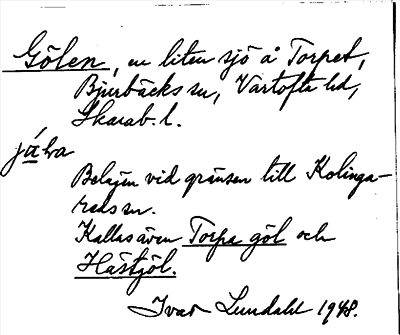 Gölen, en liten sjö å Torpet,
Bjurbäcks sn, Vartofta hd,
Skarab. l.
Belägen vid gränsen till Kolinga-
reds sn.
Kallas även Torpa göl och
Hästjöl.
Ivar Lundahl 1948.